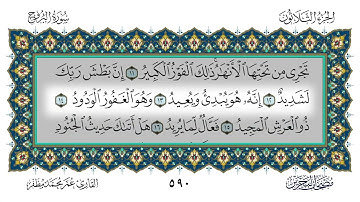 الجزء الثلاثون
سورة البروج
تَجْرِى مِن تَحْتِهَا ٱلْأَنْهَٰرُ ذَٰلِكَ ٱلْفَوْزُ ٱلْكَبِيرُ ١١ إِنَّ بَطْشَ رَبِّكَ
لَشَدِيدٌ ١٢ إِنَّهُۥ هُوَ يُبْدِئُ وَيُعِيدُ ١٣ وَهُوَ ٱلْغَفُورُ ٱلْوَدُودُ ١٤
ذُو ٱلْعَرْشِ ٱلْمَجِيدُ ١٥ فَعَّالٌ لِّمَا يُرِيدُ ١٦ هَلْ أَتَىٰكَ حَدِيثُ ٱلْجُنُودِ
القارئ عمر محمد مظفر
٥٩٠